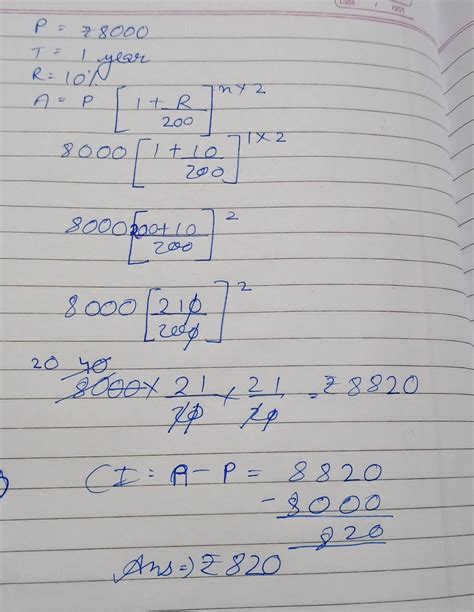 P = ₹8000
T = 1 year
R = 10%
A = P [1 + R/200]^n×2
8000 [1 + 10/200]^1×2
8000 [200+10/200]^2
8000 [210/200]^2
20 40
8000 × 21/20 × 21/20 = ₹8820
CI = A - P = 8820
- 8000
820
Ans => ₹820